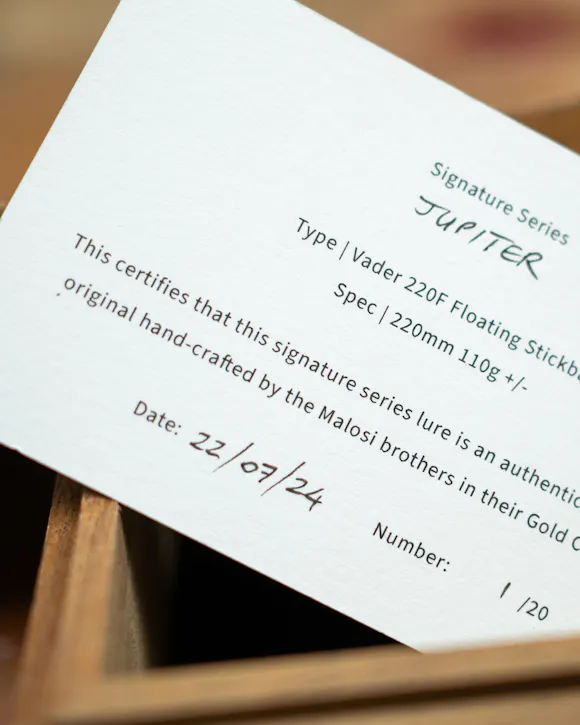 Signature Series
JUPITER
Type | Vader 220F Floating
Spec | 220mm 110g +/-
This certifies that this signature series lure is an
original hand-crafted by the Malosi brothers in their Gold
Date: 22/07/24
Number: 1 /20